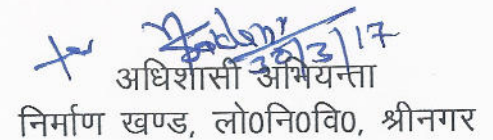 30/3/17
अधिशासी अभियन्ता
निर्माण खण्ड, लो0नि0वि0, श्रीनगर